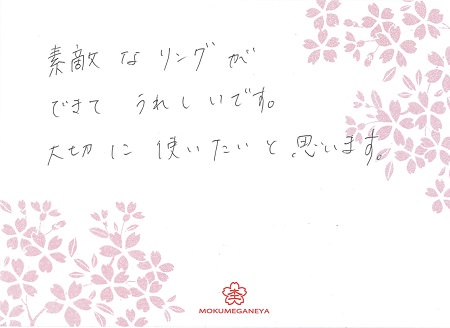 素敵なリングが
できて うれしいです。
大切に 使いたいと思います。
MOKUMEGANEYA